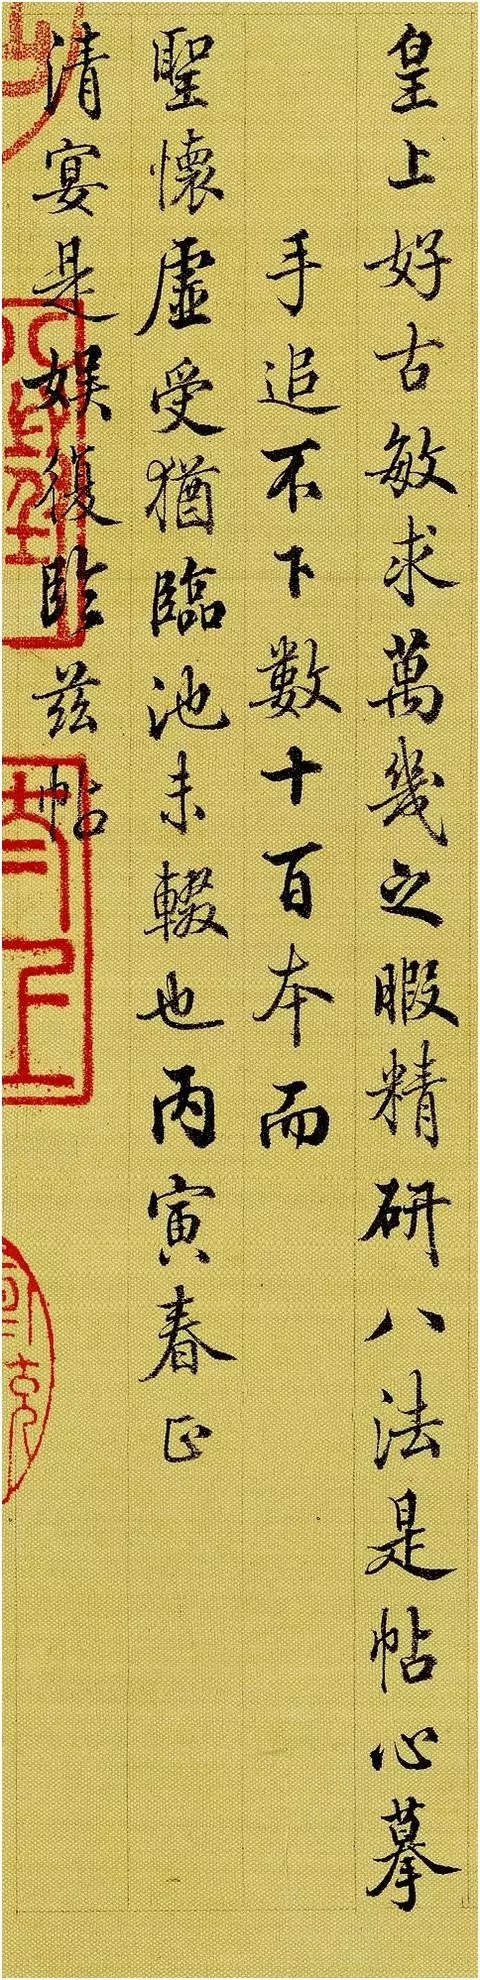 皇上好古敏求萬幾之暇精研八法是帖心摹
手追不下數十百本而
聖懷虛受猶臨池未輟也丙寅春正
清宴是娱復臨茲帖